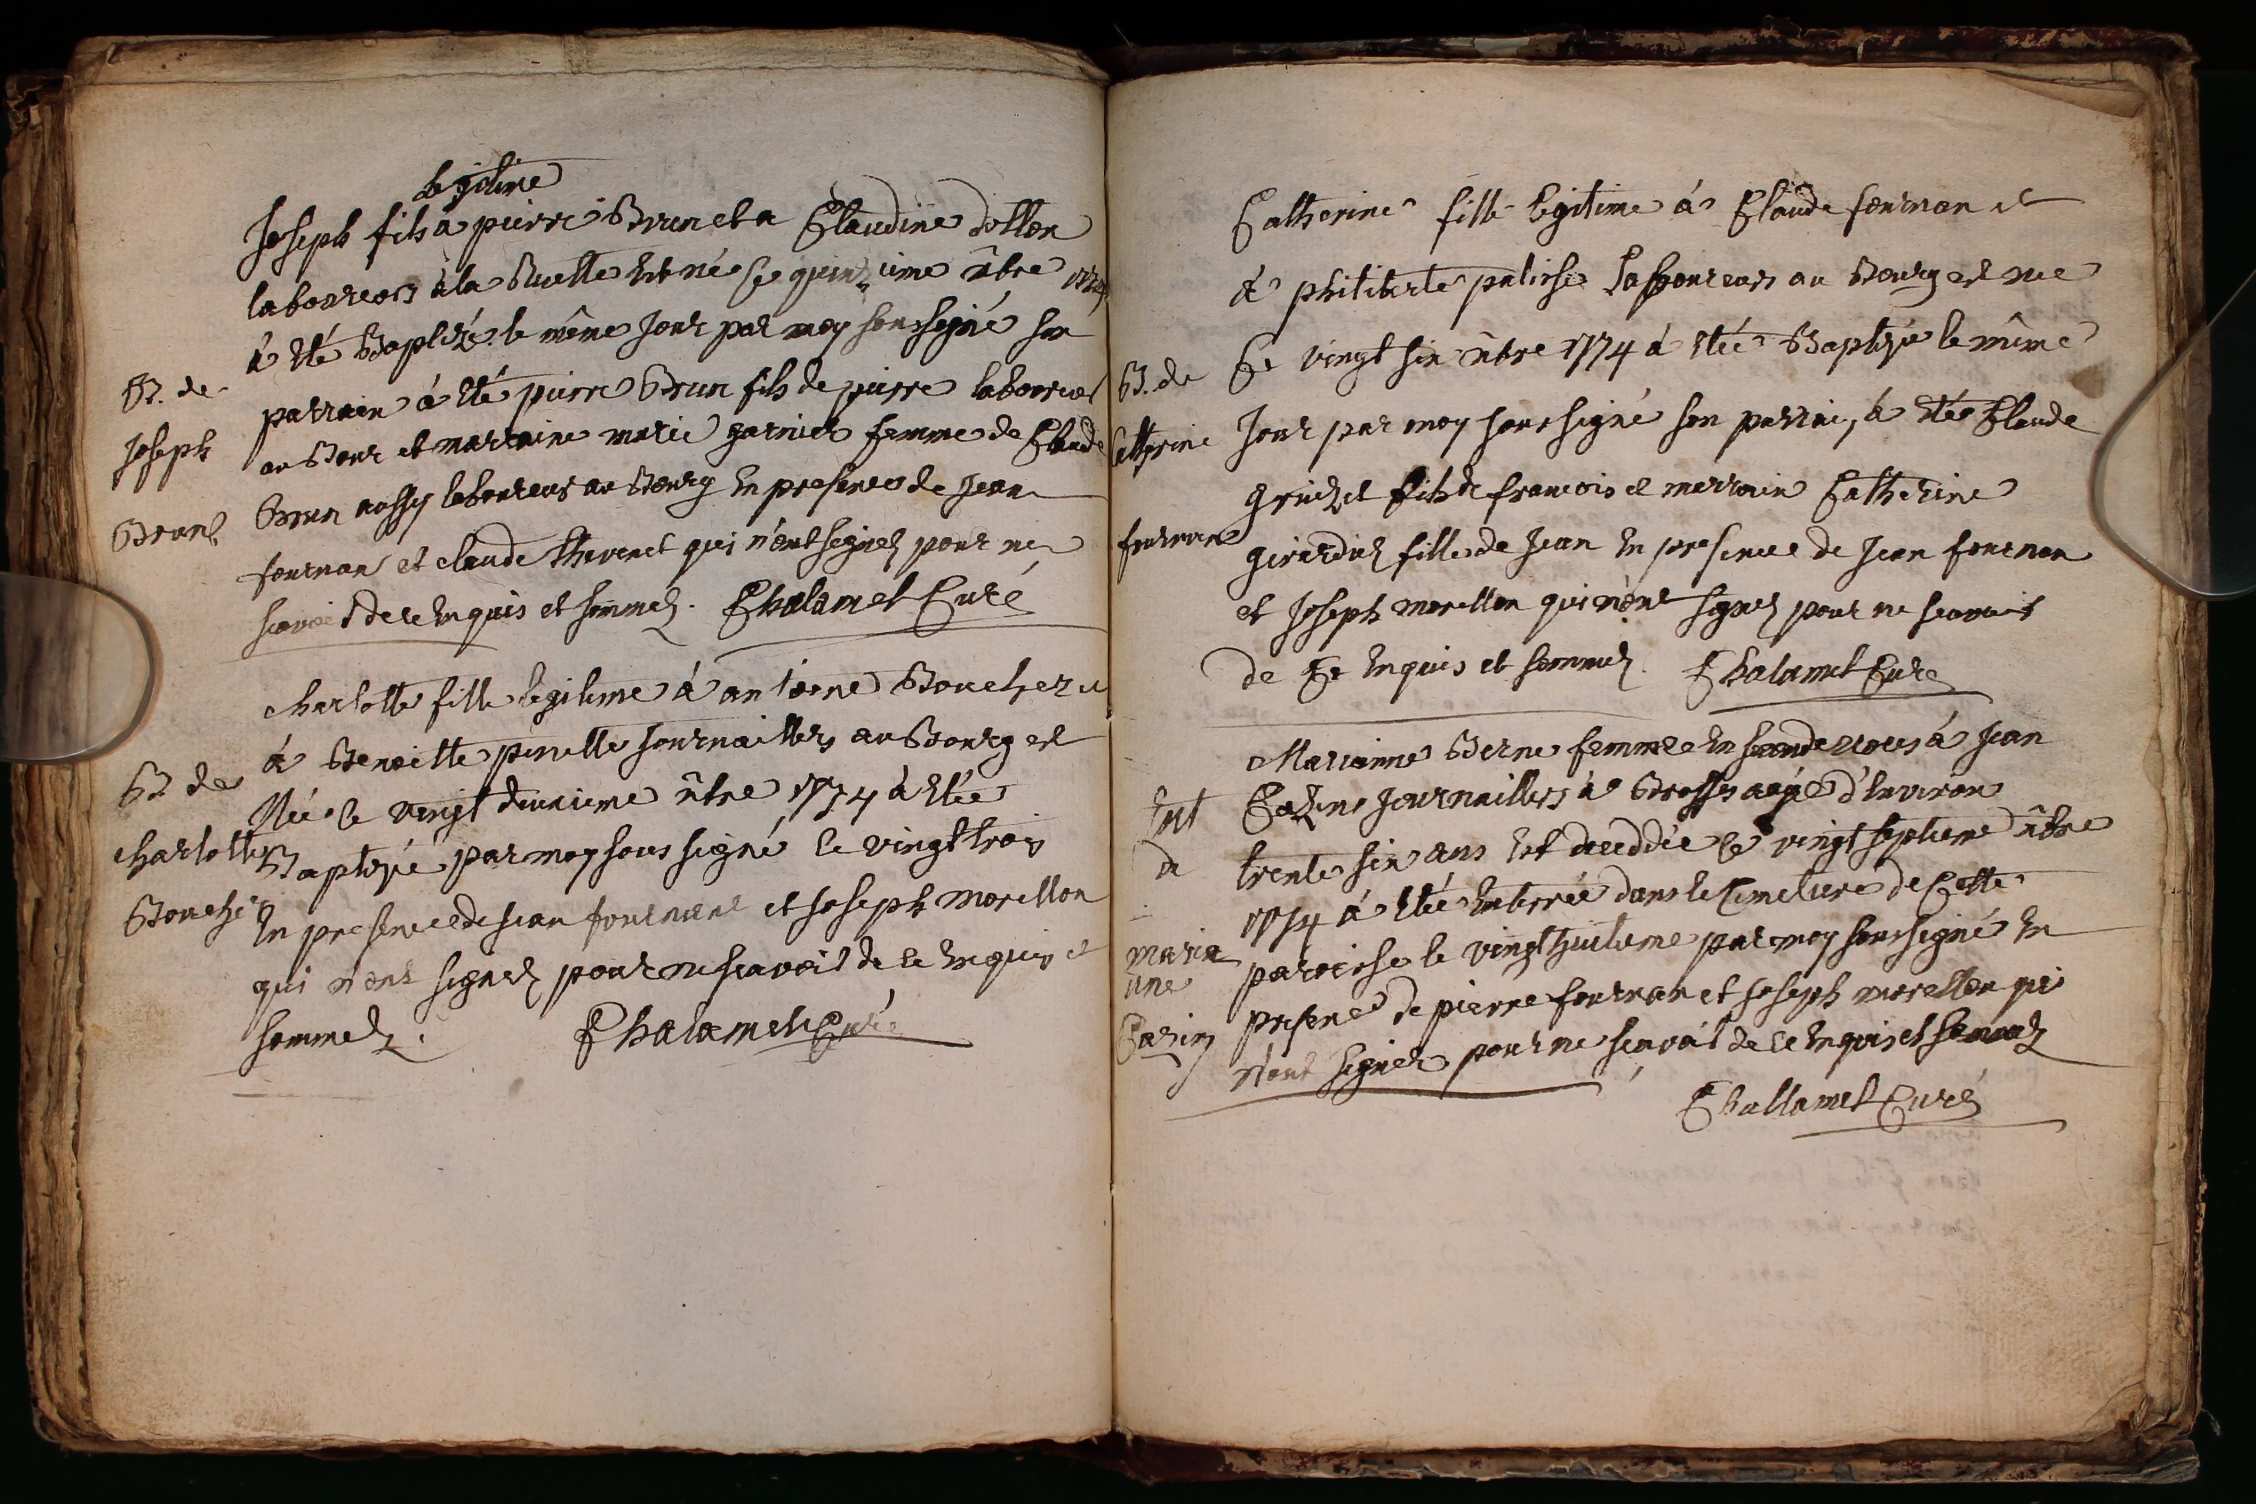 legitime
Joseph fils a pierre Brun et a Claudine
laboureurs a la est né ce quinzieme 1774
à eté Baptizé le même Jour par moy soussigné son
B. de
parrain à eté pierre Brun fils de pierre laboureur
Joseph
au Bour et marraine marie garnier femme de Claude
Brun
Brun aussy laboureur au Bourg en presence de Jean
fournon et claude thevenet qui n'ont signez pour ne
scavoit de ce enquis et sommez. Chalamel Curé
charlotte fille legitime à antoine Bouchez et
à Benoitte perelle journaillers au Bourg est
B de
Née le vingt deuxieme 1774 à etée
charlotte
Baptizée par moy sous signé le vingt trois
Bouché
en presence de jean fournon et joseph morellon
qui n'ont signez pour ne scavoit de ce enquis et
sommez. Chalamel Curé
Catherine fille legitime à Claude fournon et
à philiberte laboureurs au Bourg est nee
Ce vingt six 1774 à etée Baptizée le même
B. de
Jour par moy soussigné son parrain à eté Claude
Catherine
fils de francois et marrain Catherine
fournon
fille de Jean en presence de Jean fournon
et Joseph morellon qui n'ont signez pour ne scavoit
de Ce enquis et sommez. Chalamel Curé
Marianne Berne femme en seconde noces à Jean
Ent
Cazin Journaillers à Brosses agée d'environ
de
trente six ans est deceddée le vingt septieme
1774 à etée enterrée dans le Cimetiere de Cette
maria
paroisse le vingt huitieme par moy soussigné en
nne
presence de pierre fournon et joseph morellon qui
Cazin
n'ont signez pour ne scavoit de ce enquis et sommez
Challamel Curé